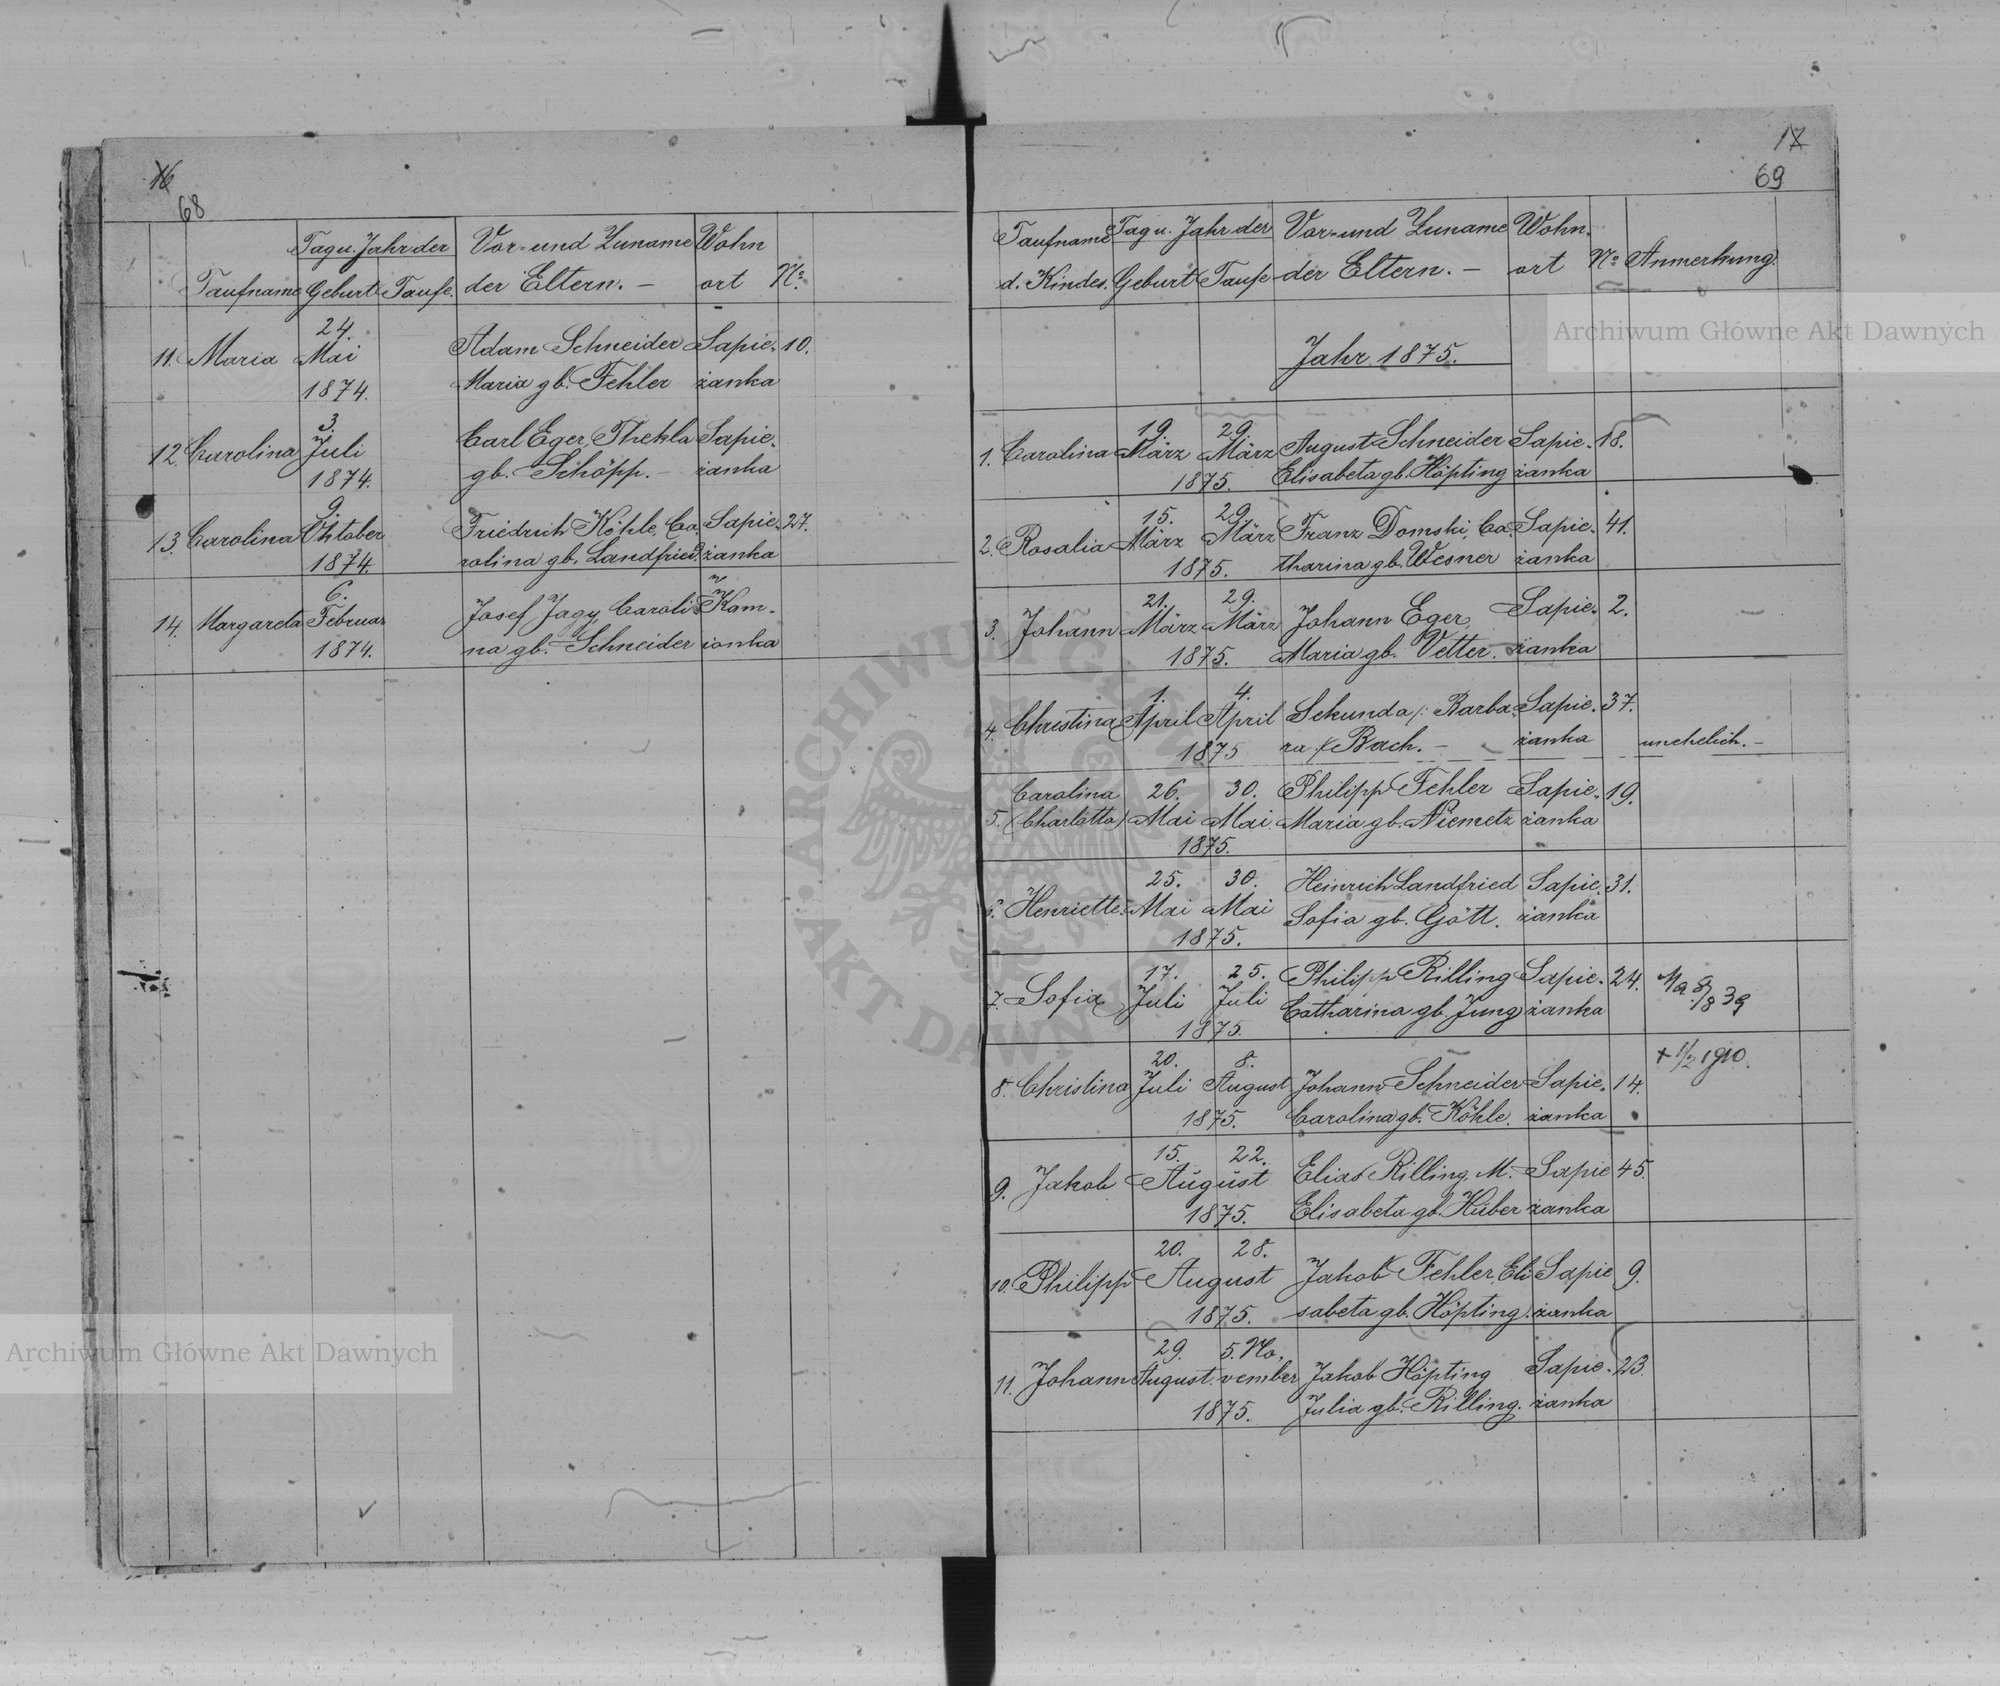 68
Tag u. Jahr der Vor- und Zuname Wohn
Taufname Geburt Taufe. der Eltern. — ort No.
24.
11. Maria Mai Adam Schneider Sapie- 10.
1874. Maria gb. Fehler żanka
3.
12. Carolina Juli Carl Eger, Thekla Sapie-
1874. gb. Schöpp. — żanka
9.
13. Carolina Oktober Friedrich Köhle, Ca- Sapie- 27.
1874. rolina gb. Landfried. żanka
6.
14. Margareta Februar Josef Jagy, Caroli- Kam-
1874. na gb. Schneider ionka
17
69
Taufname Tag u. Jahr der Vor- und Zuname Wohn-
d. Kindes. Geburt Taufe der Eltern. — ort No Anmerkung.
Jahr 1875.
19. 29.
1. Carolina März März August Schneider Sapie- 18.
1875. Elisabeta gb. Höpting żanka
15. 29.
2. Rosalia März März Franz Domski, Ca- Sapie- 41.
1875. tharina gb. Wesner żanka
21. 29.
3. Johann März März Johann Eger, Sapie- 2.
1875. Maria gb. Vetter. żanka
1. 4.
4. Christina April April Sekunda /: Barba- Sapie- 37.
1875 ra Bach. — żanka unehelich. —
Carolina 26. 30. Philipp Fehler Sapie- 19.
5. (Charlotta) Mai Mai Maria gb. Niemetz żanka
1875.
25. 30. Heinrich Landfried Sapie- 31.
6. Henriette Mai Mai Sofia gb. Gött. żanka
1875.
17. 25. Philipp Rilling Sapie- 24.
7. Sofia Juli Juli Catharina gb. Jung żanka
1875.
20. 8. + 1/2 1910.
8. Christina Juli August Johann Schneider Sapie- 14.
1875. Carolina gb. Köhle. żanka
15. 22.
9. Jakob August Elias Rilling, M. Sapie 45.
1875. Elisabeta gb. Huber żanka
20. 28.
10. Philipp August Jakob Fehler, Eli Sapie 9.
1875. sabeta gb. Höpting. żanka
29. 5. No-
11. Johann August vember Jakob Höpting Sapie- 23.
1875. Julia gb. Rilling. żanka
Archiwum Główne Akt Dawnych
Archiwum Główne Akt Dawnych
ARCHIWUM GŁÓWNE · AKT DAWNYCH ·